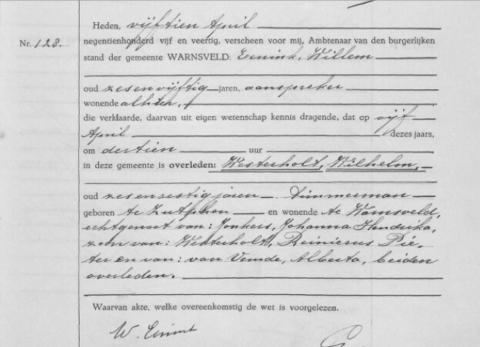 Heden, vijftien April
Nr. 128.
negentienhonderd vijf en veertig, verscheen voor mij, Ambtenaar van den burgerlijken
stand der gemeente WARNSVELD: Eenink, Willem
oud zesenvijftig jaren, aanspreker
wonende alhier,
die verklaarde, daarvan uit eigen wetenschap kennis dragende, dat op vijf
April dezes jaars,
om dertien uur
in deze gemeente is overleden: Westerholt, Wilhelm,
oud zesenzestig jaren timmerman
geboren te Zutphen en wonende te Warnsveld,
echtgenoot van: Jonkers, Johanna Hendrika,
zoon van: Westerholt, Reinierus Pie-
ter en van: van Veende, Alberta, beiden
overleden.
Waarvan akte, welke overeenkomstig de wet is voorgelezen.
W. Eenink